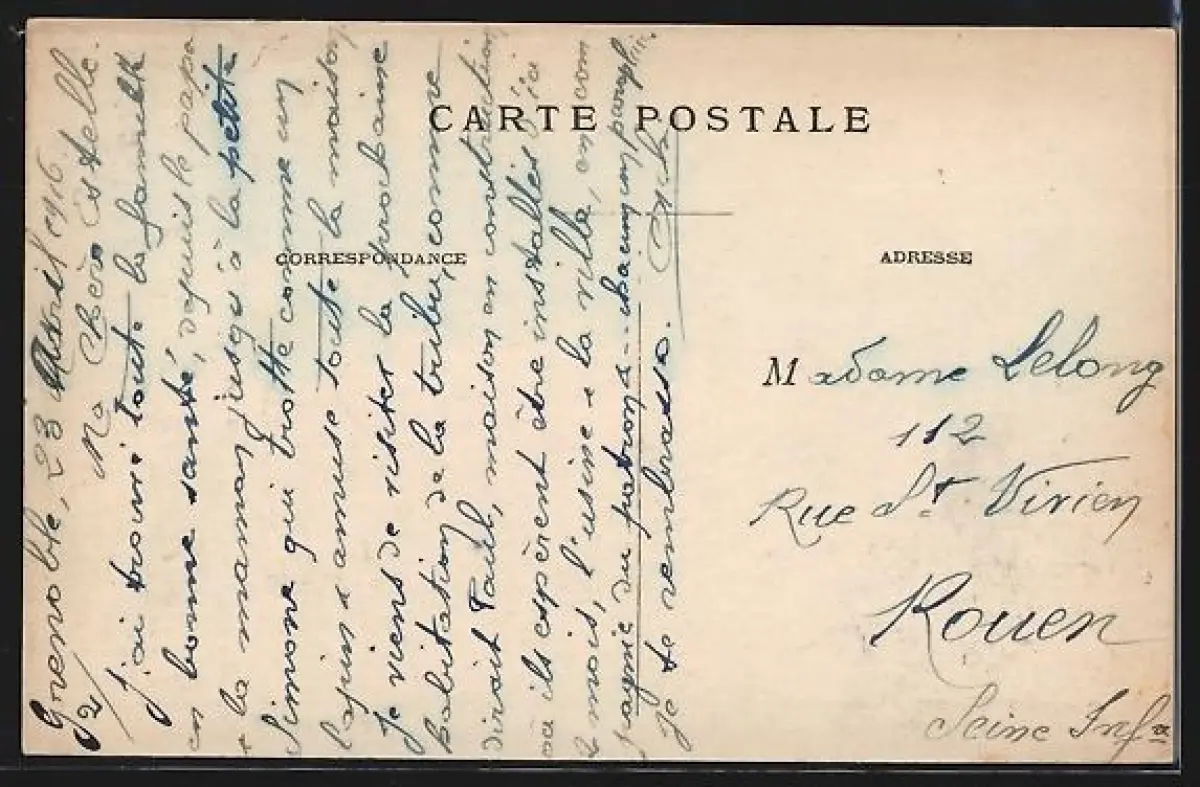 CARTE POSTALE
CORRESPONDANCE
ADRESSE
Grenoble, 23 Avril 1916
2/ Ma chère Estelle.
J'ai trouvé toute la famille
en bonne santé, depuis le papa
& la maman jusqu'à la petite
Simone qui trotte comme un
lapin & amuse toute la maison
Je viens de visiter la prochaine
habitation de la tribu, comme
dirait Paul, maison en construction
où ils espèrent être installés d'ici
2 mois, l'usine & la ville, en com
pagnie du patron & chacun
je te rembrasse.
Madame Lelong
112
Rue St Vivien
Rouen
Seine Infre